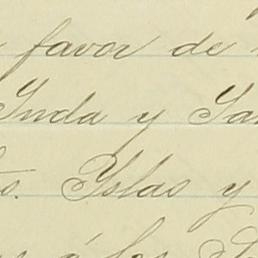 favor de
Inda y
s. Yslas y
á los